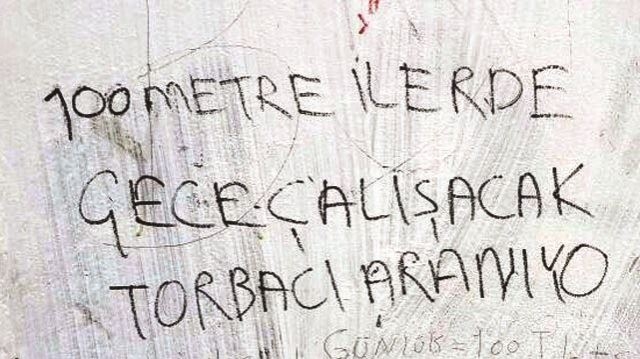 100 METRE İLERDE
GECE ÇALIŞACAK
TORBACI ARANIYO
GÜNLÜK = 100 TL